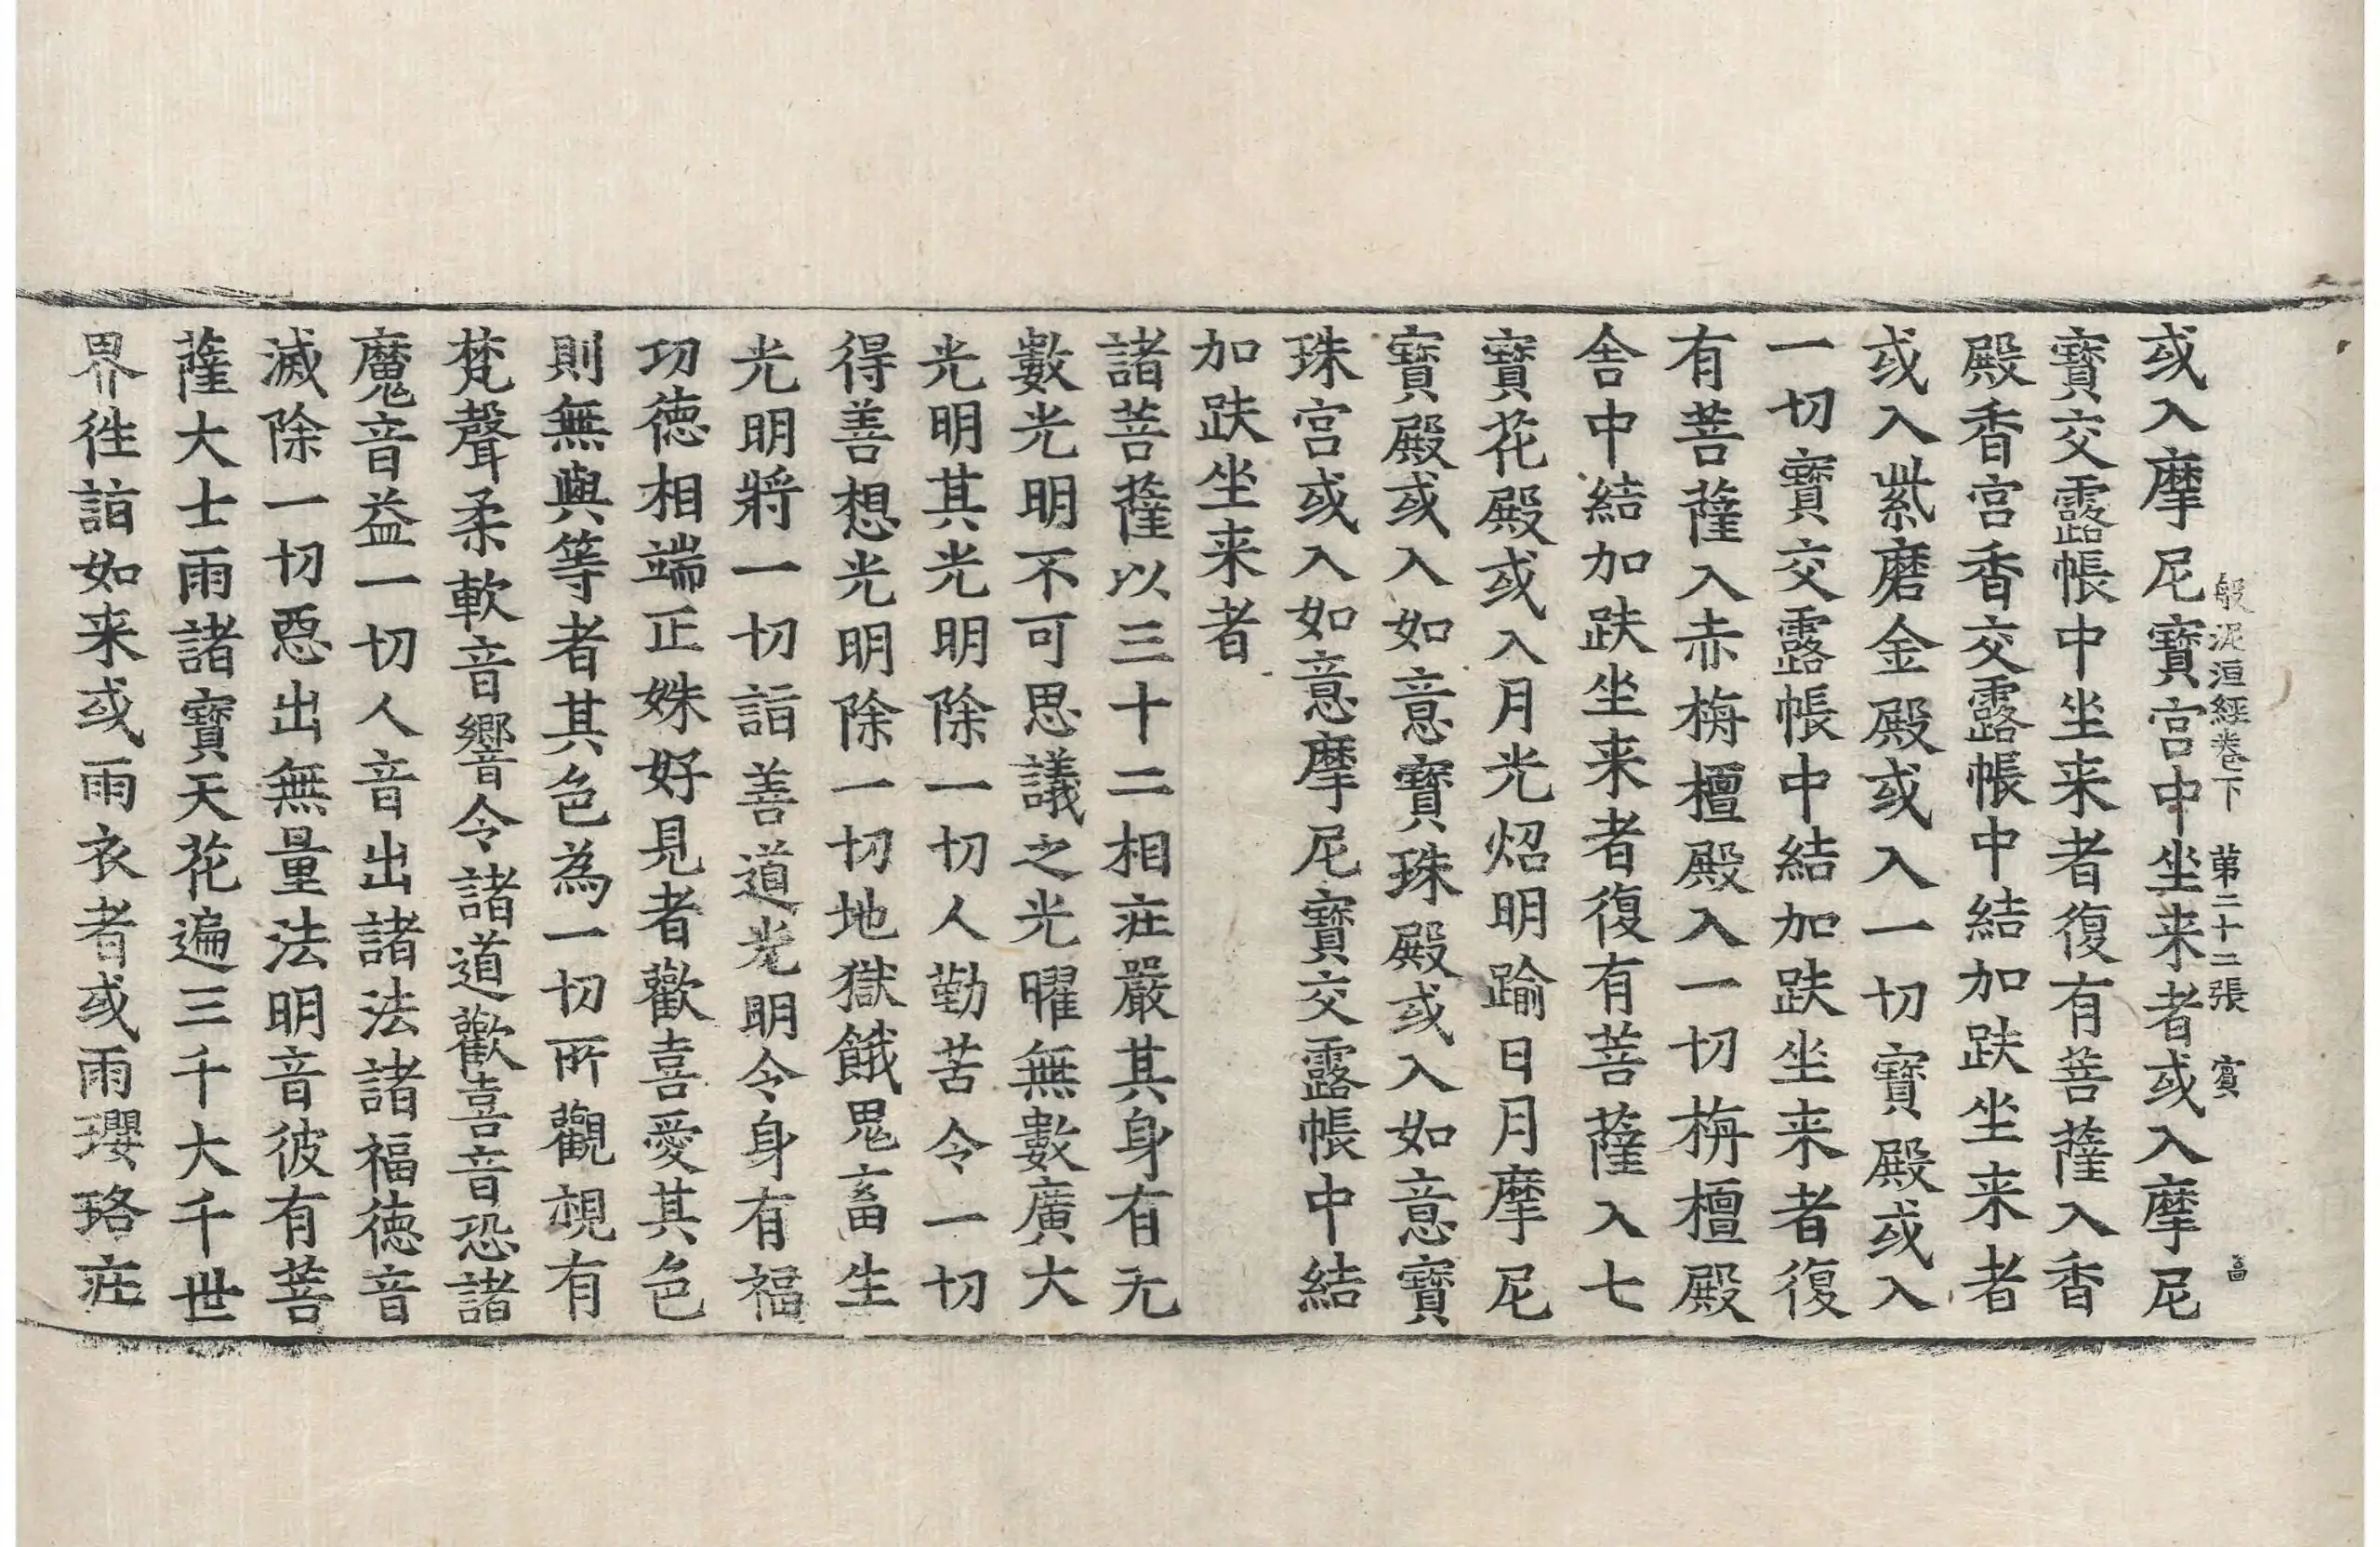 般泥洹經卷下 第二十二張 賓
或入摩尼寶宮中坐来者或入摩尼
寶交露帳中坐来者復有菩薩入香
殿香宮香交露帳中結加趺坐来者
或入紫磨金殿或入一切寶殿或入
一切寶交露帳中結加趺坐来者復
有菩薩入赤栴檀殿入一切栴檀殿
舍中結加趺坐来者復有菩薩入七
寶花殿或入月光炤明踰日月摩尼
寶殿或入如意寶珠殿或入如意寶
珠宮或入如意摩尼寶交露帳中結
加趺坐来者
諸菩薩以三十二相庄嚴其身有无
數光明不可思議之光曜無數廣大
光明其光明除一切人勤苦令一切
得善想光明除一切地獄餓鬼畜生
光明將一切詣善道光明令身有福
功德相端正姝好見者歡喜愛其色
則無與等者其色為一切所觀視有
梵聲柔軟音響令諸道歡喜音恐諸
魔音益一切人音出諸法諸福德音
滅除一切惡出無量法明音彼有菩
薩大士雨諸寶天花遍三千大千世
界徃詣如来或雨衣者或雨瓔珞庄